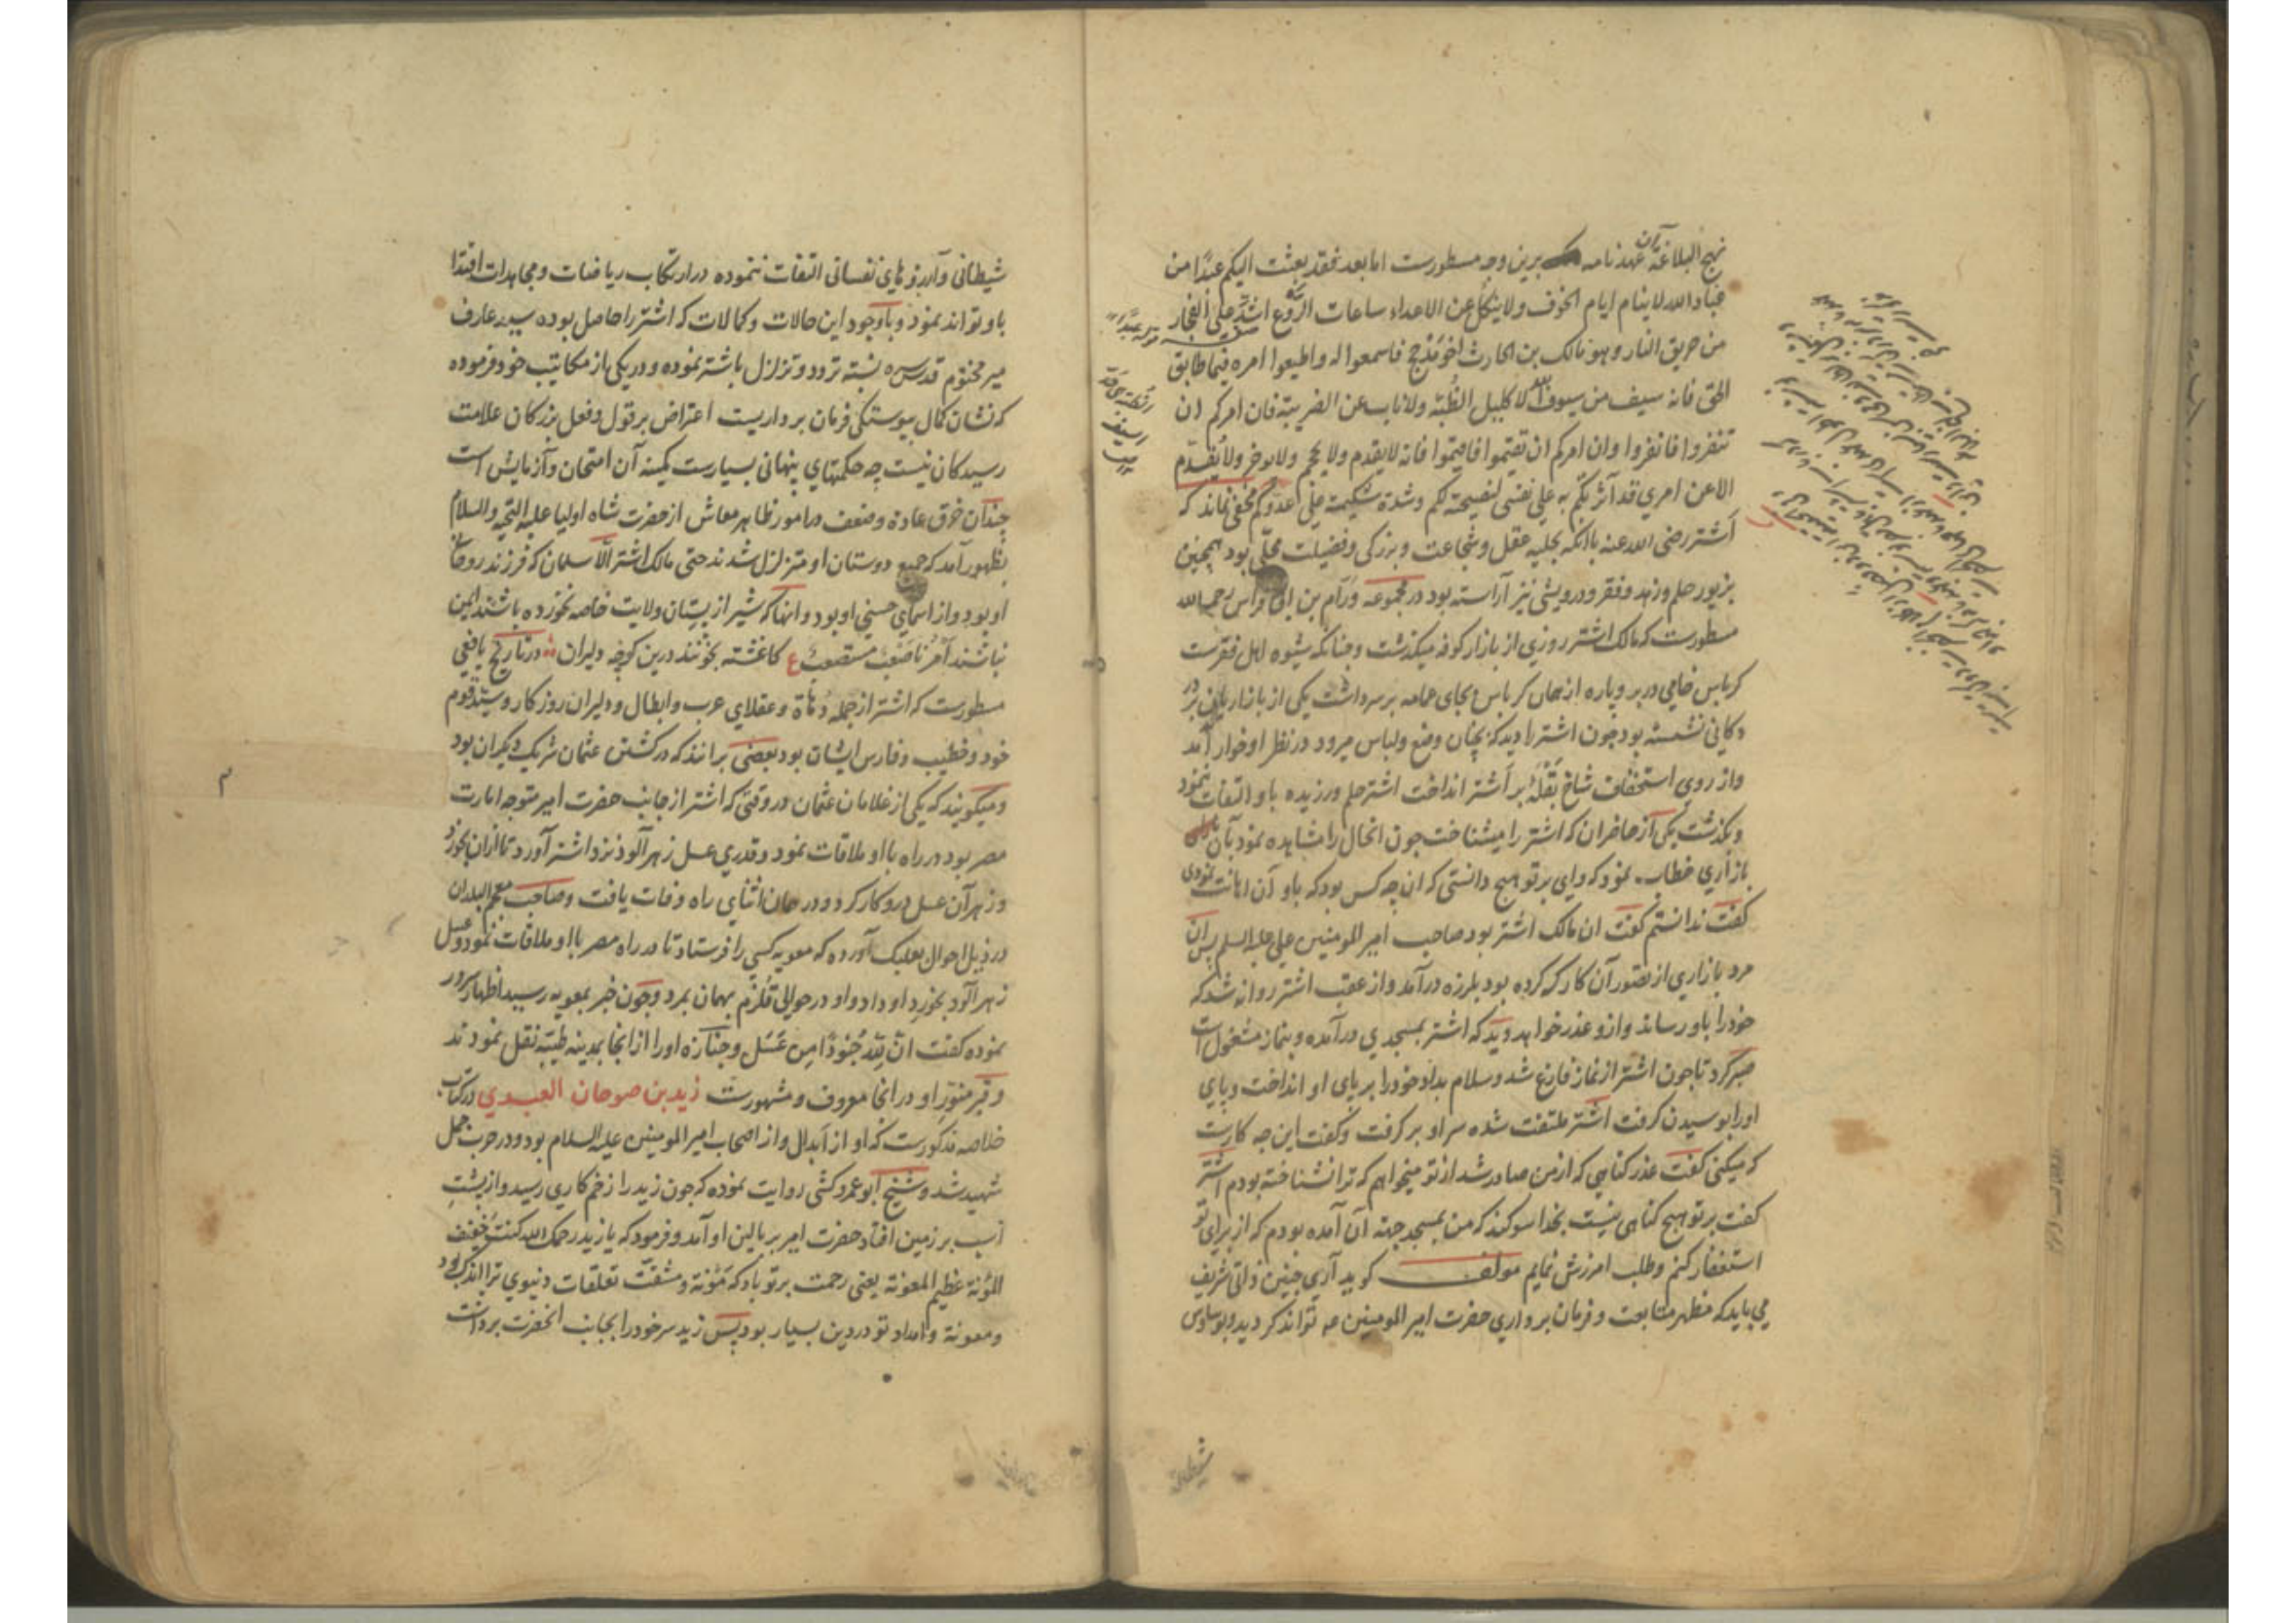 نهج البلاغة آن عهدنامه برین وجه مسطورست اما بعد فقد بعثت الیکم عبدًا من
عباد الله لاینام ایام الخوف ولاینکل عن الاعداء ساعات الرَّوع اشدَّ علی الفجار
من حریق النار وهو مالک بن الحارث اخو مَذْحِج فاسمعوا له واطیعوا امره فیما طابق
الحق فانه سیف من سیوف الله لا کلیل الظُّبَة ولا ناب عن الضریبة فان امرکم ان
تنفروا فانفروا وان امرکم ان تقیموا فاقیموا فانه لایقدم ولا یحجم ولا یوخر ولا یُقدّم
الا عن امری قد آثرتکم به علی نفسی لنصیحته لکم وشدة شکیمته علی عدوّکم مخفی نماند که
اشتر رضی الله عنه باآنکه بحلیه عقل وشجاعت وبزرکی وفضیلت محلّی بود همچنین
بزیور حلم وزهد وفقر ودرویشی نیز آراسته بود در مجموعه ورّام بن ابی فراس رحمه الله
مسطورست که مالک اشتر روزی از بازار کوفه میکذشت وچنانکه شیوه اهل فقرست
کرباس خامی در بر وپاره از همان کرباس بجای عمامه بر سر داشت یکی از بازاریان بر در
دکانی نشسته بود چون اشتر را دید که بچنان وضع ولباس میرود در نظر او خوار آمد
واز روی استخفاف شاخ بَقْلَهٔ بر اشتر انداخت اشتر حلم ورزیده باو التفات ننمود
وبکذشت یکی از حاضران که اشتر را میشناخت چون انحال را مشاهده نمود بآن
بازاری خطاب نمود که وای بر تو هیچ دانستی که ان چه کس بود که باو آن اهانت نمودی
کفت ندانستم کفت ان مالک اشتر بود صاحب امیر المومنین علی علیه السلم پس ان
مرد بازاری از تصور آن کار که کرده بود بلرزه درآمد واز عقب اشتر روانه شد که
خود را باو رساند وازو عذر خواهد دید که اشتر بمسجدی درآمده وبنماز مشغول است
صبر کرد تا چون اشتر از نماز فارغ شد وسلام بداد خود را بر پای او انداخت وپای
او را بوسیدن کرفت اشتر ملتفت شده سر او بر کرفت وکفت این چه کارست
که میکنی کفت عذر کناهی که از من صادر شد از تو میخواهم که ترا نشناخته بودم اشتر
کفت بر تو هیچ کناهی نیست بخدا سوکند که من بمسجد جهة آن آمده بودم که از برای تو
استغفار کنم وطلب امرزش نمایم مولف کوید آری چنین ذاتی شریف
می باید که مظهر متابعت وفرمان برداری حضرت امیر المومنین ع تواند کردید وبوساوس
شیطانی
شیطانی وآرزوهای نفسانی التفات ننموده در ارتکاب ریاضات ومجاهدات اقتدا
باو تواند نمود وباوجود این حالات وکمالات که اشتر را حاصل بوده سید عارف
میر مختوم قدس سره نسبت تردد وتزلزل باشتر نموده ودر یکی از مکاتیب خود فرموده
که نشان کمال پیوستکی فرمان برداریست اعتراض بر قول وفعل بزرکان علامت
رسیدکان نیست چه حکمتهای پنهانی بسیارست کمینه آن امتحان وآزمایش است
چندان خرق عاده وضعف در امور ظاهر معاش از حضرت شاه اولیا علیه التحیه والسلام
بظهور آمد که جمیع دوستان او متزلزل شدند حتی مالک اشتر الّا سلمان که فرزند روحانی
او بود واز اسمای حسنی او بود وانها که شیر از پستان ولایت خاصه نخورده باشند ایمن
نباشند امرُنا صَعْبٌ مستصعبٌ ع کاغشته بخونند درین کوچه دلیران در تاریخ یافعی
مسطورست که اشتر از جمله دُهاة وعقلای عرب وابطال ودلیران روزکار وسید قوم
خود وخطیب وفارس ایشان بود بعضی برانند که در کشتن عثمان شریک دیکران بود
ومیکویند که یکی از غلامان عثمان در وقتی که اشتر از جانب حضرت امیر متوجه امارت
مصر بود در راه با او ملاقات نمود وقدری عسل زهرآلود نزد اشتر آورد تا ازان بخورد
وزهر آن عسل درو کار کرد ودر همان اثنای راه وفات یافت وصاحب معجم البلدان
در ذیل احوال بعلبک آورده که معویه کسی را فرستاد تا در راه مصر با او ملاقات نمود وعسل
زهرآلود بخورد او داد واو در حوالی قُلْزُم بهمان بمرد وچون خبر بمعویه رسید اظهار سرور
نموده کفت انّ لِلّهِ جُنُودًا مِن عَسَل وجنازه او را از انجا بمدینه طیّبه نقل نمودند
وقبر منوّر او در انجا معروف ومشهورست زید بن صوحان العبدی در کتاب
خلاصه مذکورست که او از ابدال واز اصحاب امیر المومنین علیه السلام بود ودر حرب جمل
شهید شد وشیخ ابو عمرو کشی روایت نموده که چون زید را زخم کاری رسید واز پشت
اسب بر زمین افتاد حضرت امیر بر بالین او آمد وفرمود که یا زید رحمک الله کنت خفیف
المؤنة عظیم المعونة یعنی رحمت بر تو باد که مَؤنة ومشقّت تعلقات دنیوی ترا اندک بود
ومعونة وامداد تو در دین بسیار بود پس زید سر خود را بجانب انحضرت برداشت